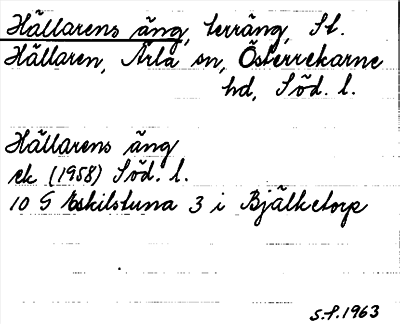 Hällarens äng, terräng, St.
Hällaren, Ärla sn, Österrekarne
hd, Söd. l.
Hällarens äng
ek (1958) Söd. l.
10 G Eskilstuna 3 i Bjälketorp
S.P. 1963